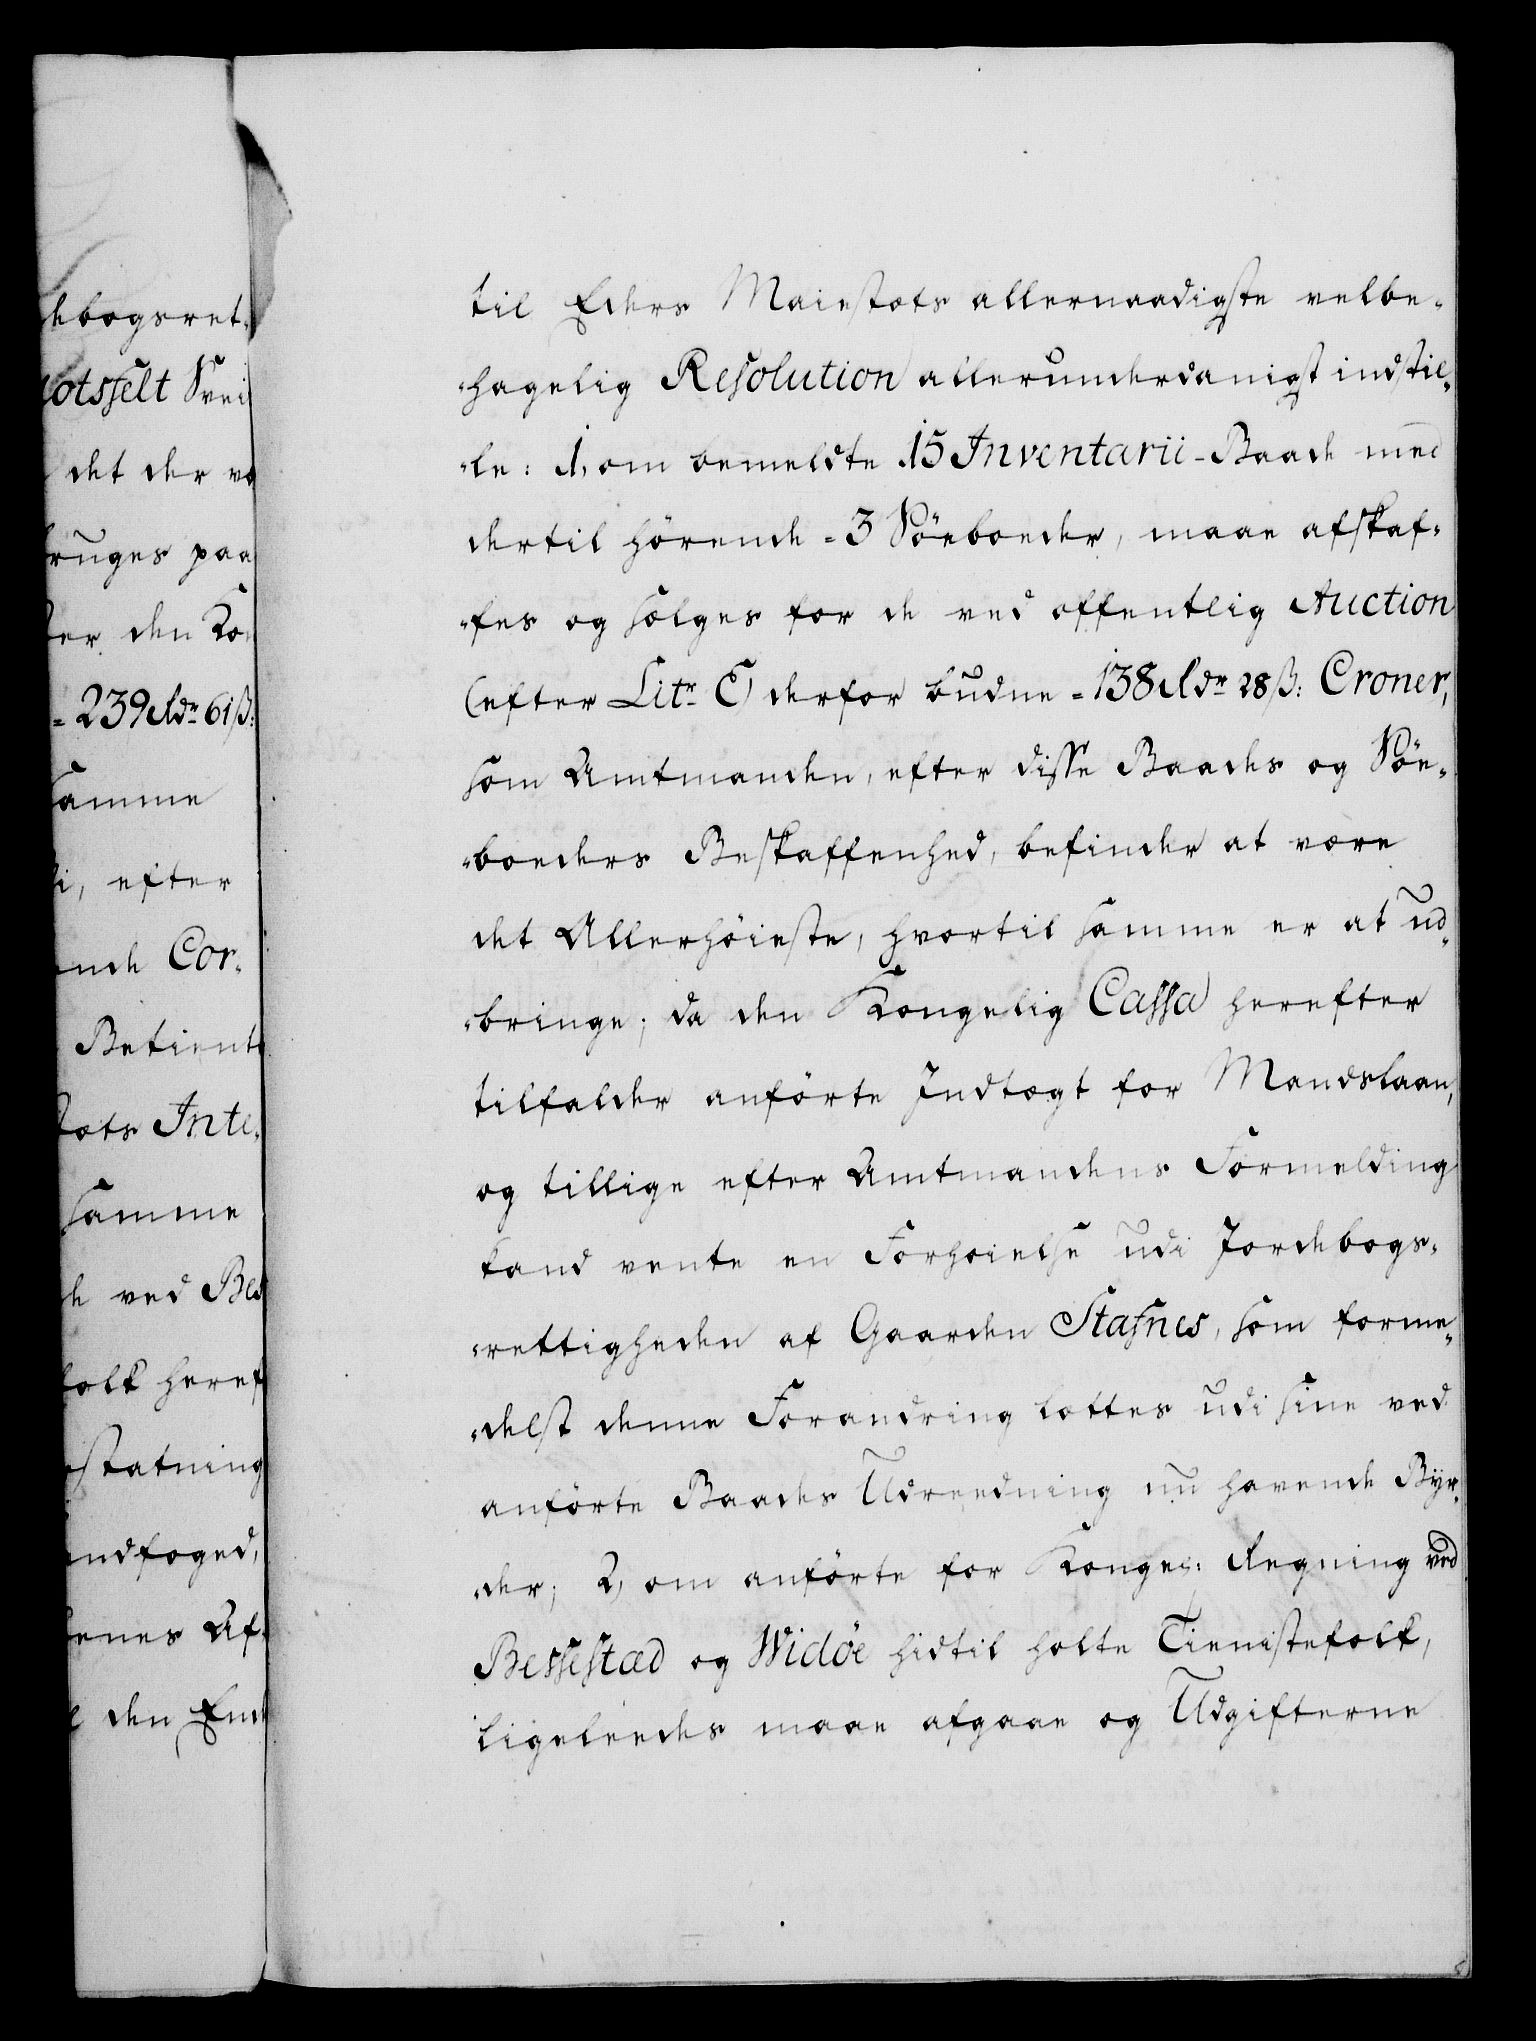 debogsret-
otsselt Svei
det der va
bruges paa
ter den Ko
= 239 Rdr 61 ß:
samme
i, efter
ende Cor-
Betient
stæts Inte-
samme
de ved Bes
folk heref
statning
andfoged,
enes Af-
l den Ende
til Eders Maiestæts allernaadigste velbe-
-hagelig Resolution allerunderdanigst indstil-
-le: 1, om bemeldte 15 Inventarii-Baade med
dertil hörende = 3 Söeboeder, maae afskaf-
-fes og sælges for de ved offentlig Auction
(efter Litr. E) derfor budne = 138 Rdr 28 ß: Croner,
som Amtmanden, efter disse Baades og Söe-
-boeders Beskaffenhed, befinder at være
det Allerhöieste, hvortil samme er at ud-
-bringe; da den Kongelig Cassa herefter
tilfalder anförte Indtægt for Mandslaan,
og tillige efter Amtmandens Formelding
kand vente en Forhöielse udi Jordebogs-
-rettigheden af Gaarden Stafnes, som forme-
-delst denne Forandring lættes udi sine ved
anförte Baades Udreedning nu havende Byr-
-der; 2, om anförte for Kongel: Regning ved
Bessestæd og Widöe hidtil holte Tienistefolk,
ligeleedes maae afgaae og Udgifterne